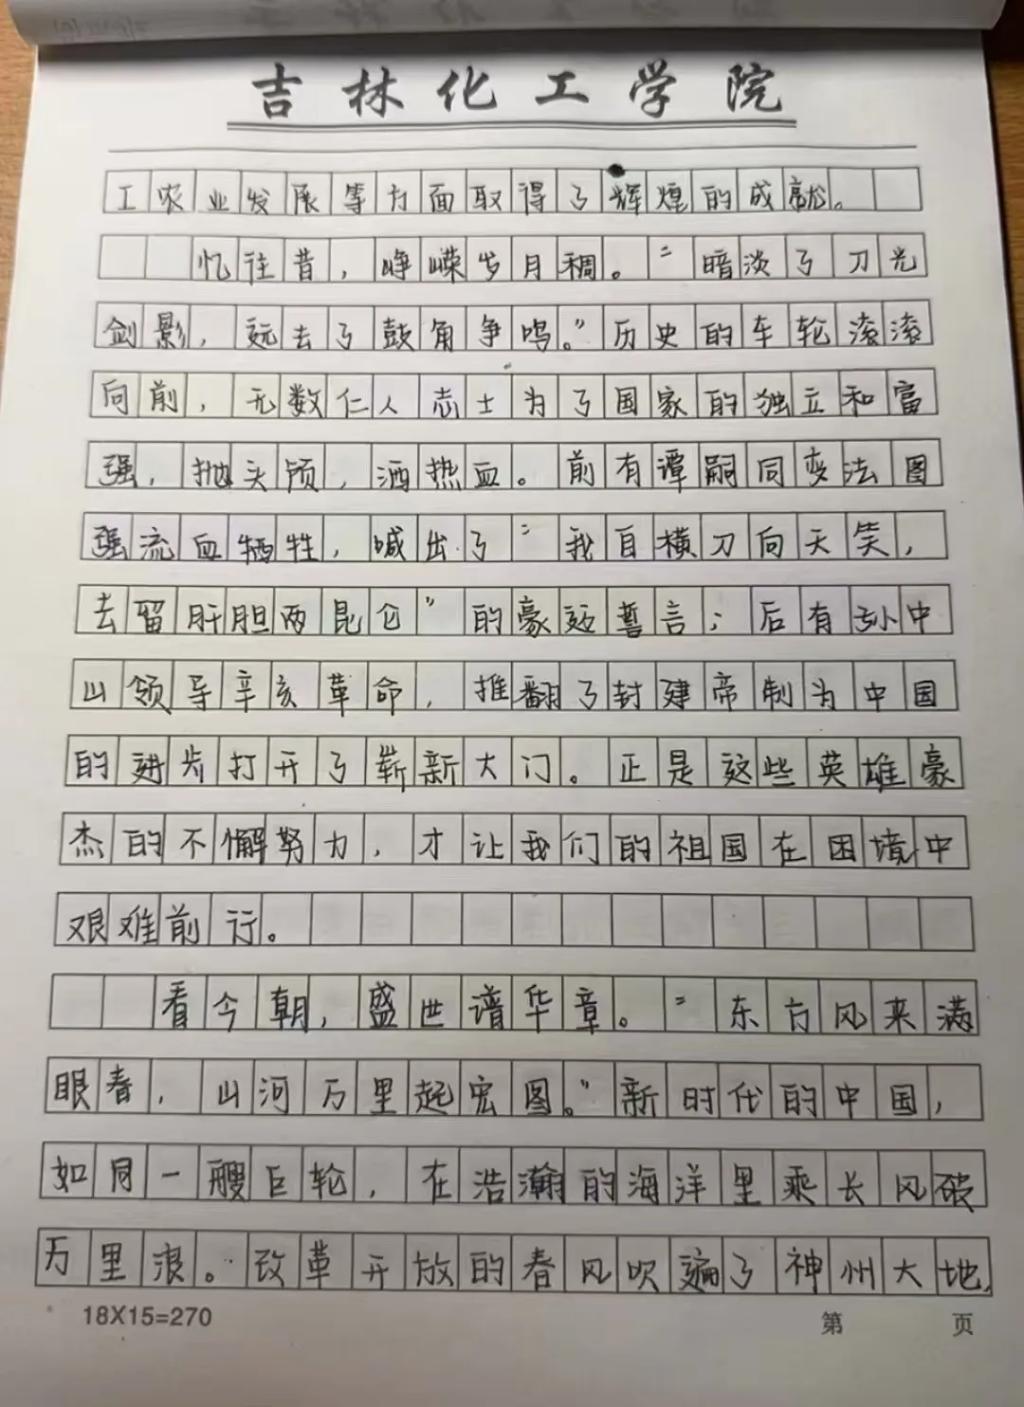 吉林化工学院
工农业发展等方面取得了辉煌的成就。
忆往昔，峥嵘岁月稠。“暗淡了刀光
剑影，远去了鼓角争鸣。”历史的车轮滚滚
向前，无数仁人志士为了国家的独立和富
强，抛头颅，洒热血。前有谭嗣同变法图
强流血牺牲，喊出了“我自横刀向天笑，
去留肝胆两昆仑”的豪迈誓言；后有孙中
山领导辛亥革命，推翻了封建帝制为中国
的进步打开了崭新大门。正是这些英雄豪
杰的不懈努力，才让我们的祖国在困境中
艰难前行。
看今朝，盛世谱华章。“东方风来满
眼春，山河万里起宏图。”新时代的中国，
如同一艘巨轮，在浩瀚的海洋里乘长风破
万里浪。改革开放的春风吹遍了神州大地，
18X15=270
第 页